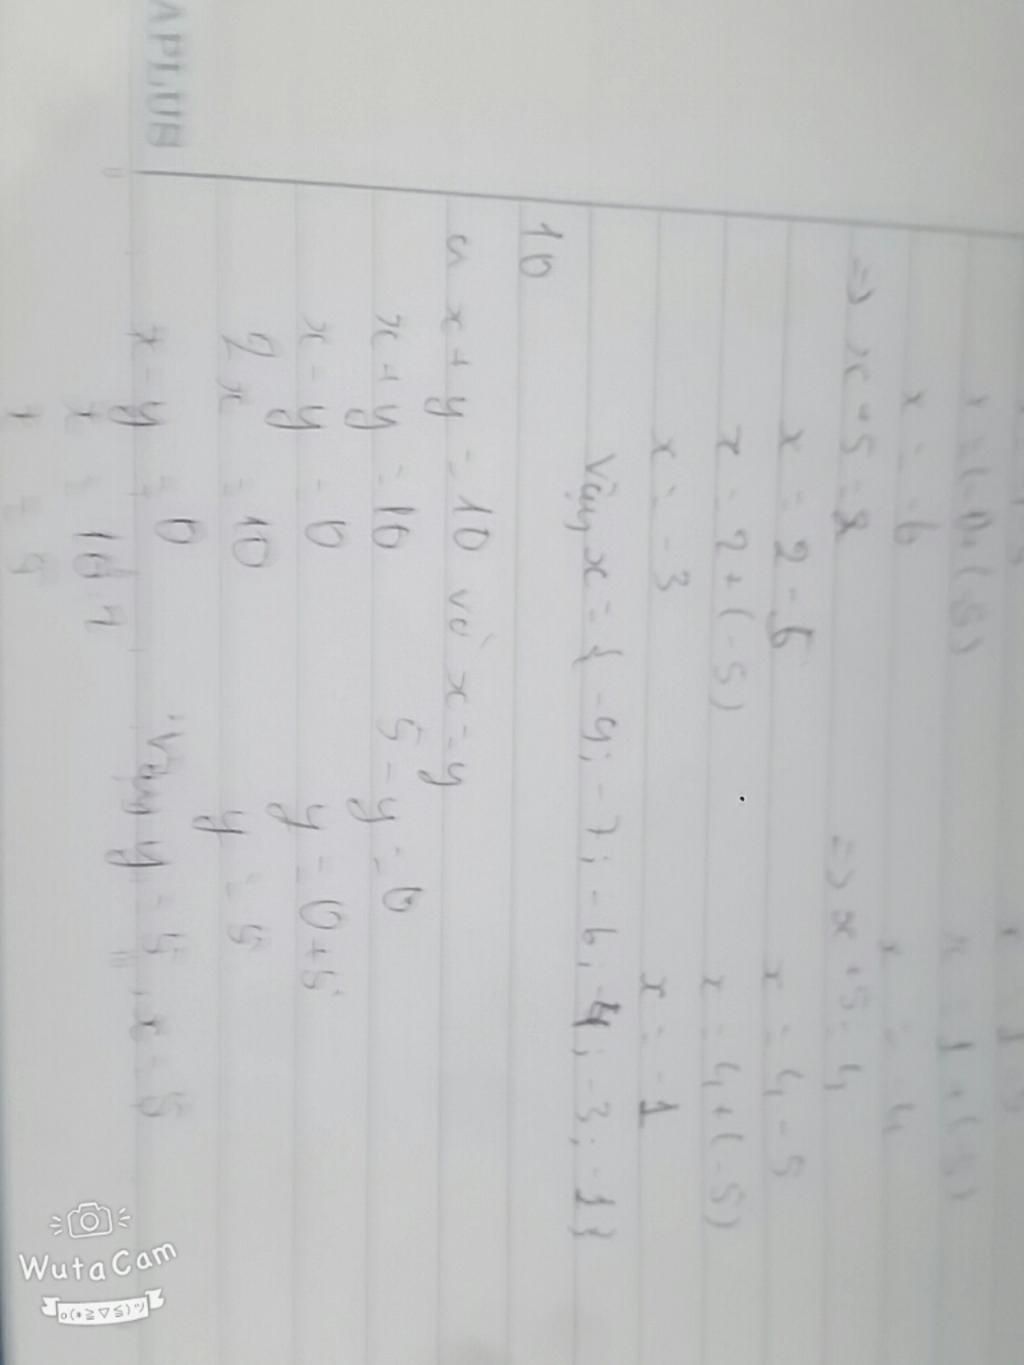 x = 1 + (-5)
x = -6
x = -4
=> x + 5 = 2
=> x + 5 = 4
x = 2 - 5
x = 4 - 5
x = 2 + (-5)
x = 4 + (-5)
x = -3
x = -1
Vậy x = { -9; -7; -6; -4; -3; -1}
10
a x + y = 10 và x = y
x + y = 10
5 - y = 0
x - y = 0
y = 0 + 5
2x = 10
y = 5
x - y = 0
Vậy y = 5, x = 5
APLUS
WutaCam